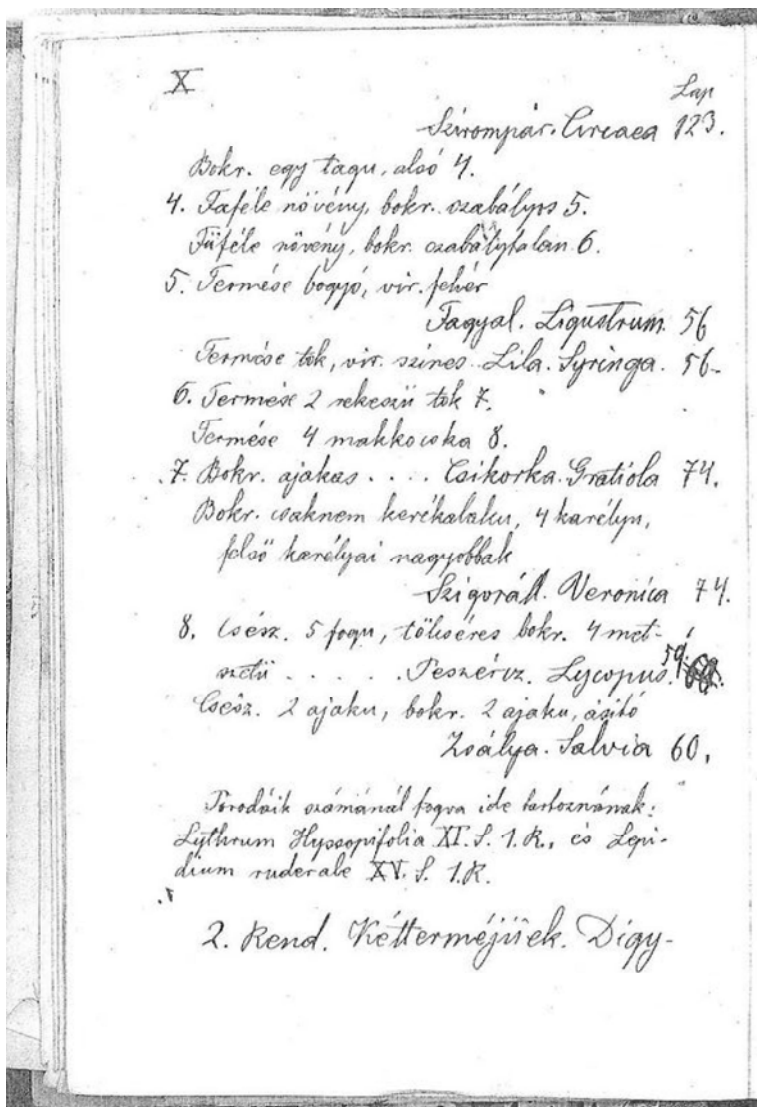 X
Lap
Szirompár. Circaea 123.
Bokr. egy tagu, alsó 4.
4. Faféle növény, bokr. szabályos 5.
Fűféle növény, bokr. szabálytalan 6.
5. Termése bogyó, vir. fehér
Fagyal. Ligustrum. 56
Termése tok, vir. szines. Lila. Syringa. 56-
6. Termése 2 rekeszü tok 7.
Termése 4 makkocska 8.
7. Bokr. ajakas . . . . Csikorka. Gratiola 74.
Bokr. csaknem kerékalaku, 4 karélyu,
felső karélyai nagyobbak
Szigoráll. Veronica 74.
8. Csész. 5 fogu, tölcséres bokr. 4 met-
szetü . . . . . Peszércz. Lycopus. 59.
Csész. 2 ajaku, bokr. 2 ajaku, ásitó
Zsálya. Salvia 60.
Porodáik számánál fogva ide tartoznának:
Lythrum Hyssopifolia XI. S. 1. R., és Lepi-
dium ruderale XV. S. 1. R.
2. Rend. Kétterméjüek. Digy-